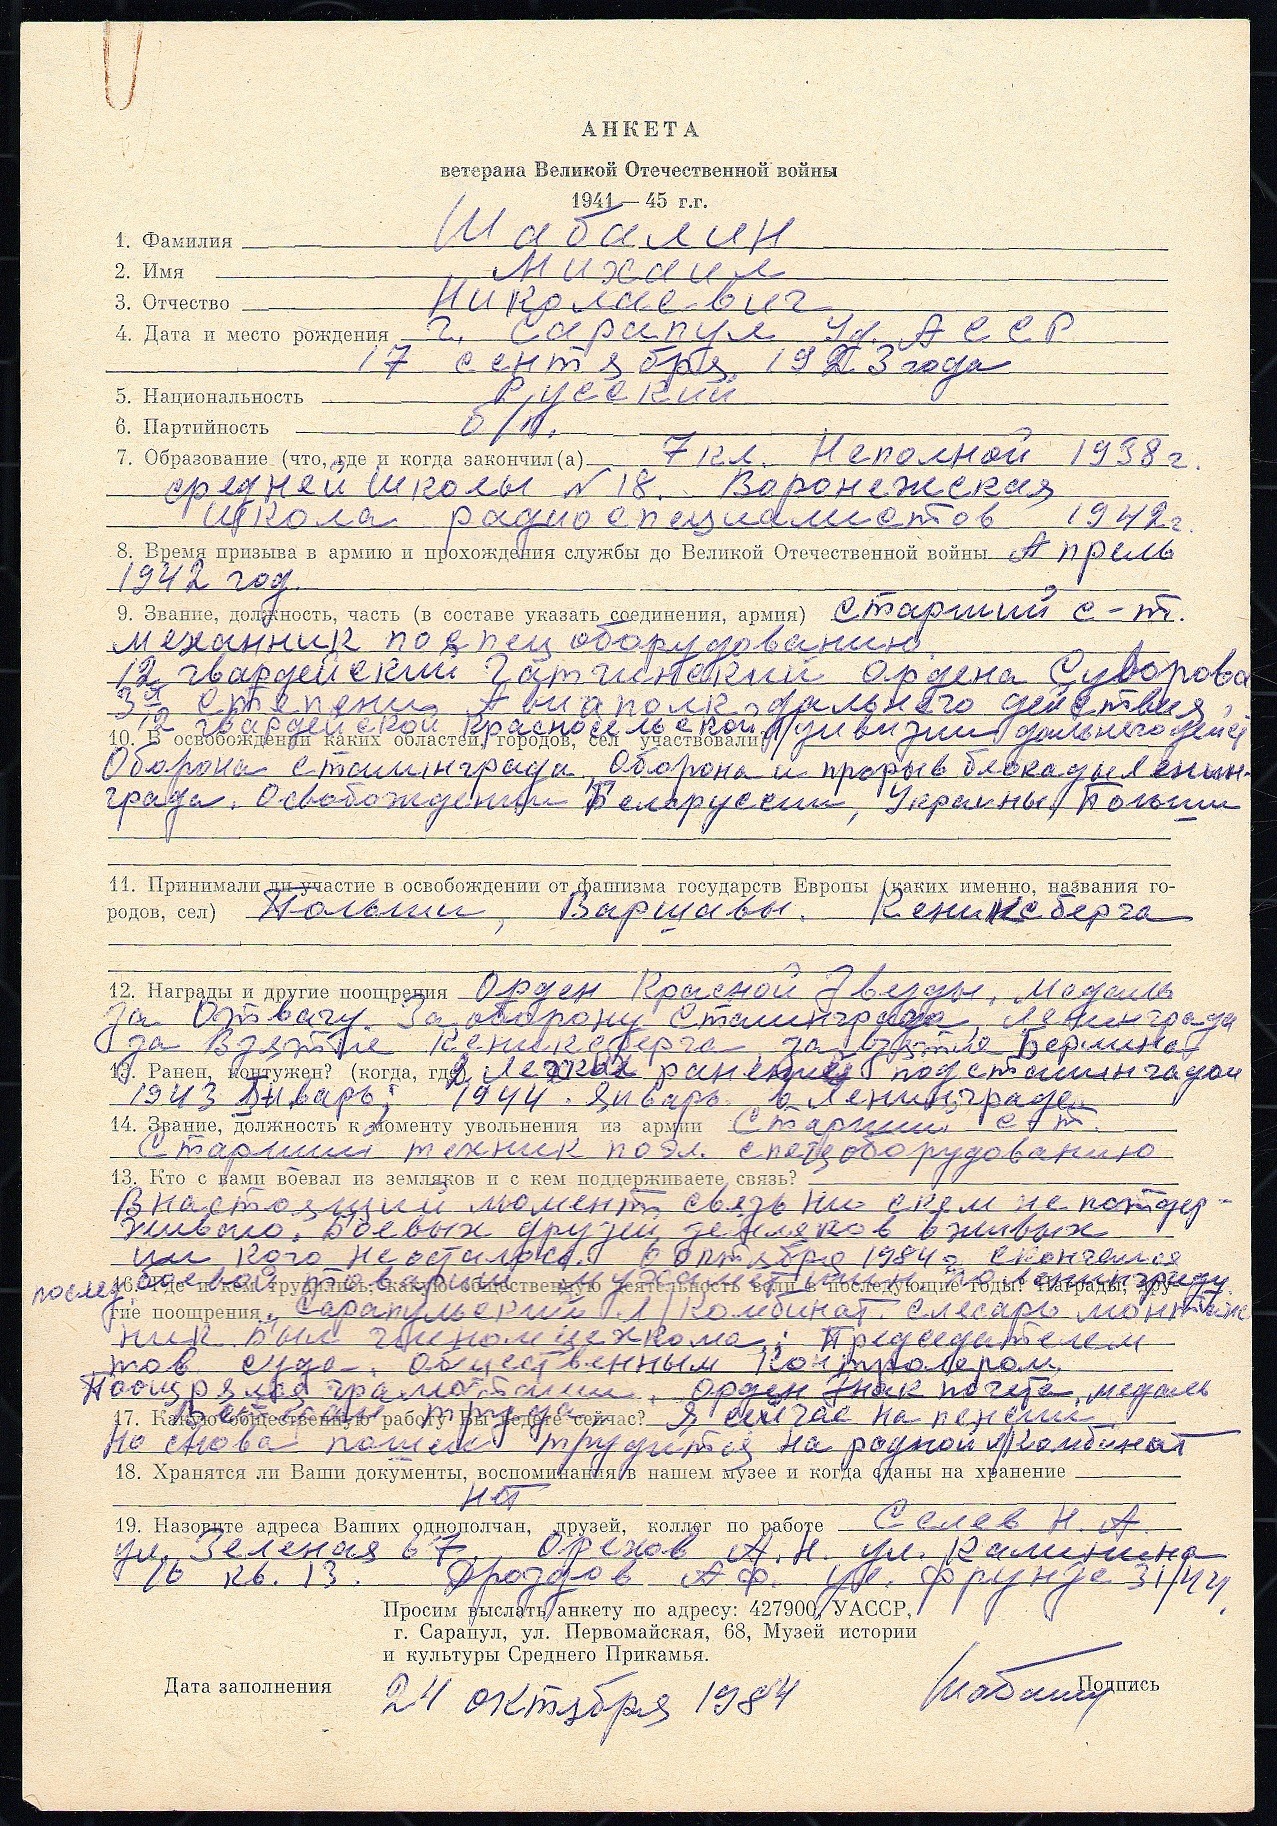 АНКЕТА
ветерана Великой Отечественной войны
1941 — 45 г.г.
1. Фамилия Шабалин
2. Имя Михаил
3. Отчество Николаевич
4. Дата и место рождения г. Сарапул Уд. АССР
17 сентября 1923 года
5. Национальность Русский
6. Партийность б/п.
7. Образование (что, где и когда закончил(а) 7 кл. Неполной 1938 г.
средней школы № 18. Воронежская
школа радиоспециалистов 1942 г.
8. Время призыва в армию и прохождения службы до Великой Отечественной войны Апрель
1942 год.
9. Звание, должность, часть (в составе указать соединения, армия) старший с-т.
механник по спец оборудованию
12 гвардейский Гатчинский ордена Суворова
3й степени Авиаполк дальнего действия,
гвардейской Красносельской дивизии дальнего дейст
10. В освобождении каких областей, городов, сел участвовали?
Оборона сталинграда. Оборона и прорыв блокады Ленин-
града. Освобождении Белоруссии, Украины, Польши
11. Принимали ли участие в освобождении от фашизма государств Европы (каких именно, названия го-
родов, сел) Польши, Варшавы. Кениксберга
12. Награды и другие поощрения Орден Красной Звезды, Медаль
За Отвагу. За оборону Сталинграда, Ленинграда
за Взятие Кениксберга, за взятие Берлина
13. Ранен, контужен? (когда, где) 2 легких ранения под сталинградом
1943 Январь; 1944. январь в Ленинграде.
14. Звание, должность к моменту увольнения из армии Старший с-т.
Старший техник по эл. спецоборудованию
13. Кто с вами воевал из земляков и с кем поддерживаете связь?
В настоящий момент связь ни скем не поддер-
живаю. Боевых друзей земляков в живых
ни кого не осталось. 6 октября 1984 г. скончался
послед. боевой товарищ
16. Где и кем трудились, какую общественную деятельность вели в последующие годы? Награды, дру-
гие поощрения. Сарапульский Л/Комбинат слесарь монтаж
ник был членом цехкома; Председателем
тов суда. общественным контролером.
Поощрялся грамотами. орден Знак почета, медаль
Ветеран труда.
17. Какую общественную работу Вы ведете сейчас? Я сейчас на пенсии
Но снова пошел трудится на родной л/Комбинат
18. Хранятся ли Ваши документы, воспоминания в нашем музее и когда сданы на хранение
нет
19. Назовите адреса Ваших однополчан, друзей, коллег по работе Н. А.
ул. Зеленая 67. Орехов А. Н. ул. Калинина
16 кв. 13. Дроздов А Ф. ул. Фрунзе 31/44,
Просим выслать анкету по адресу: 427900, УАССР,
г. Сарапул, ул. Первомайская, 68, Музей истории
и культуры Среднего Прикамья.
Дата заполнения 24 октября 1984 Подпись